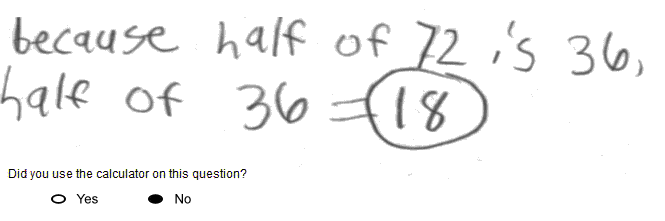 because half of 72 is 36,
half of 36 = 18
Did you use the calculator on this question?
Yes No